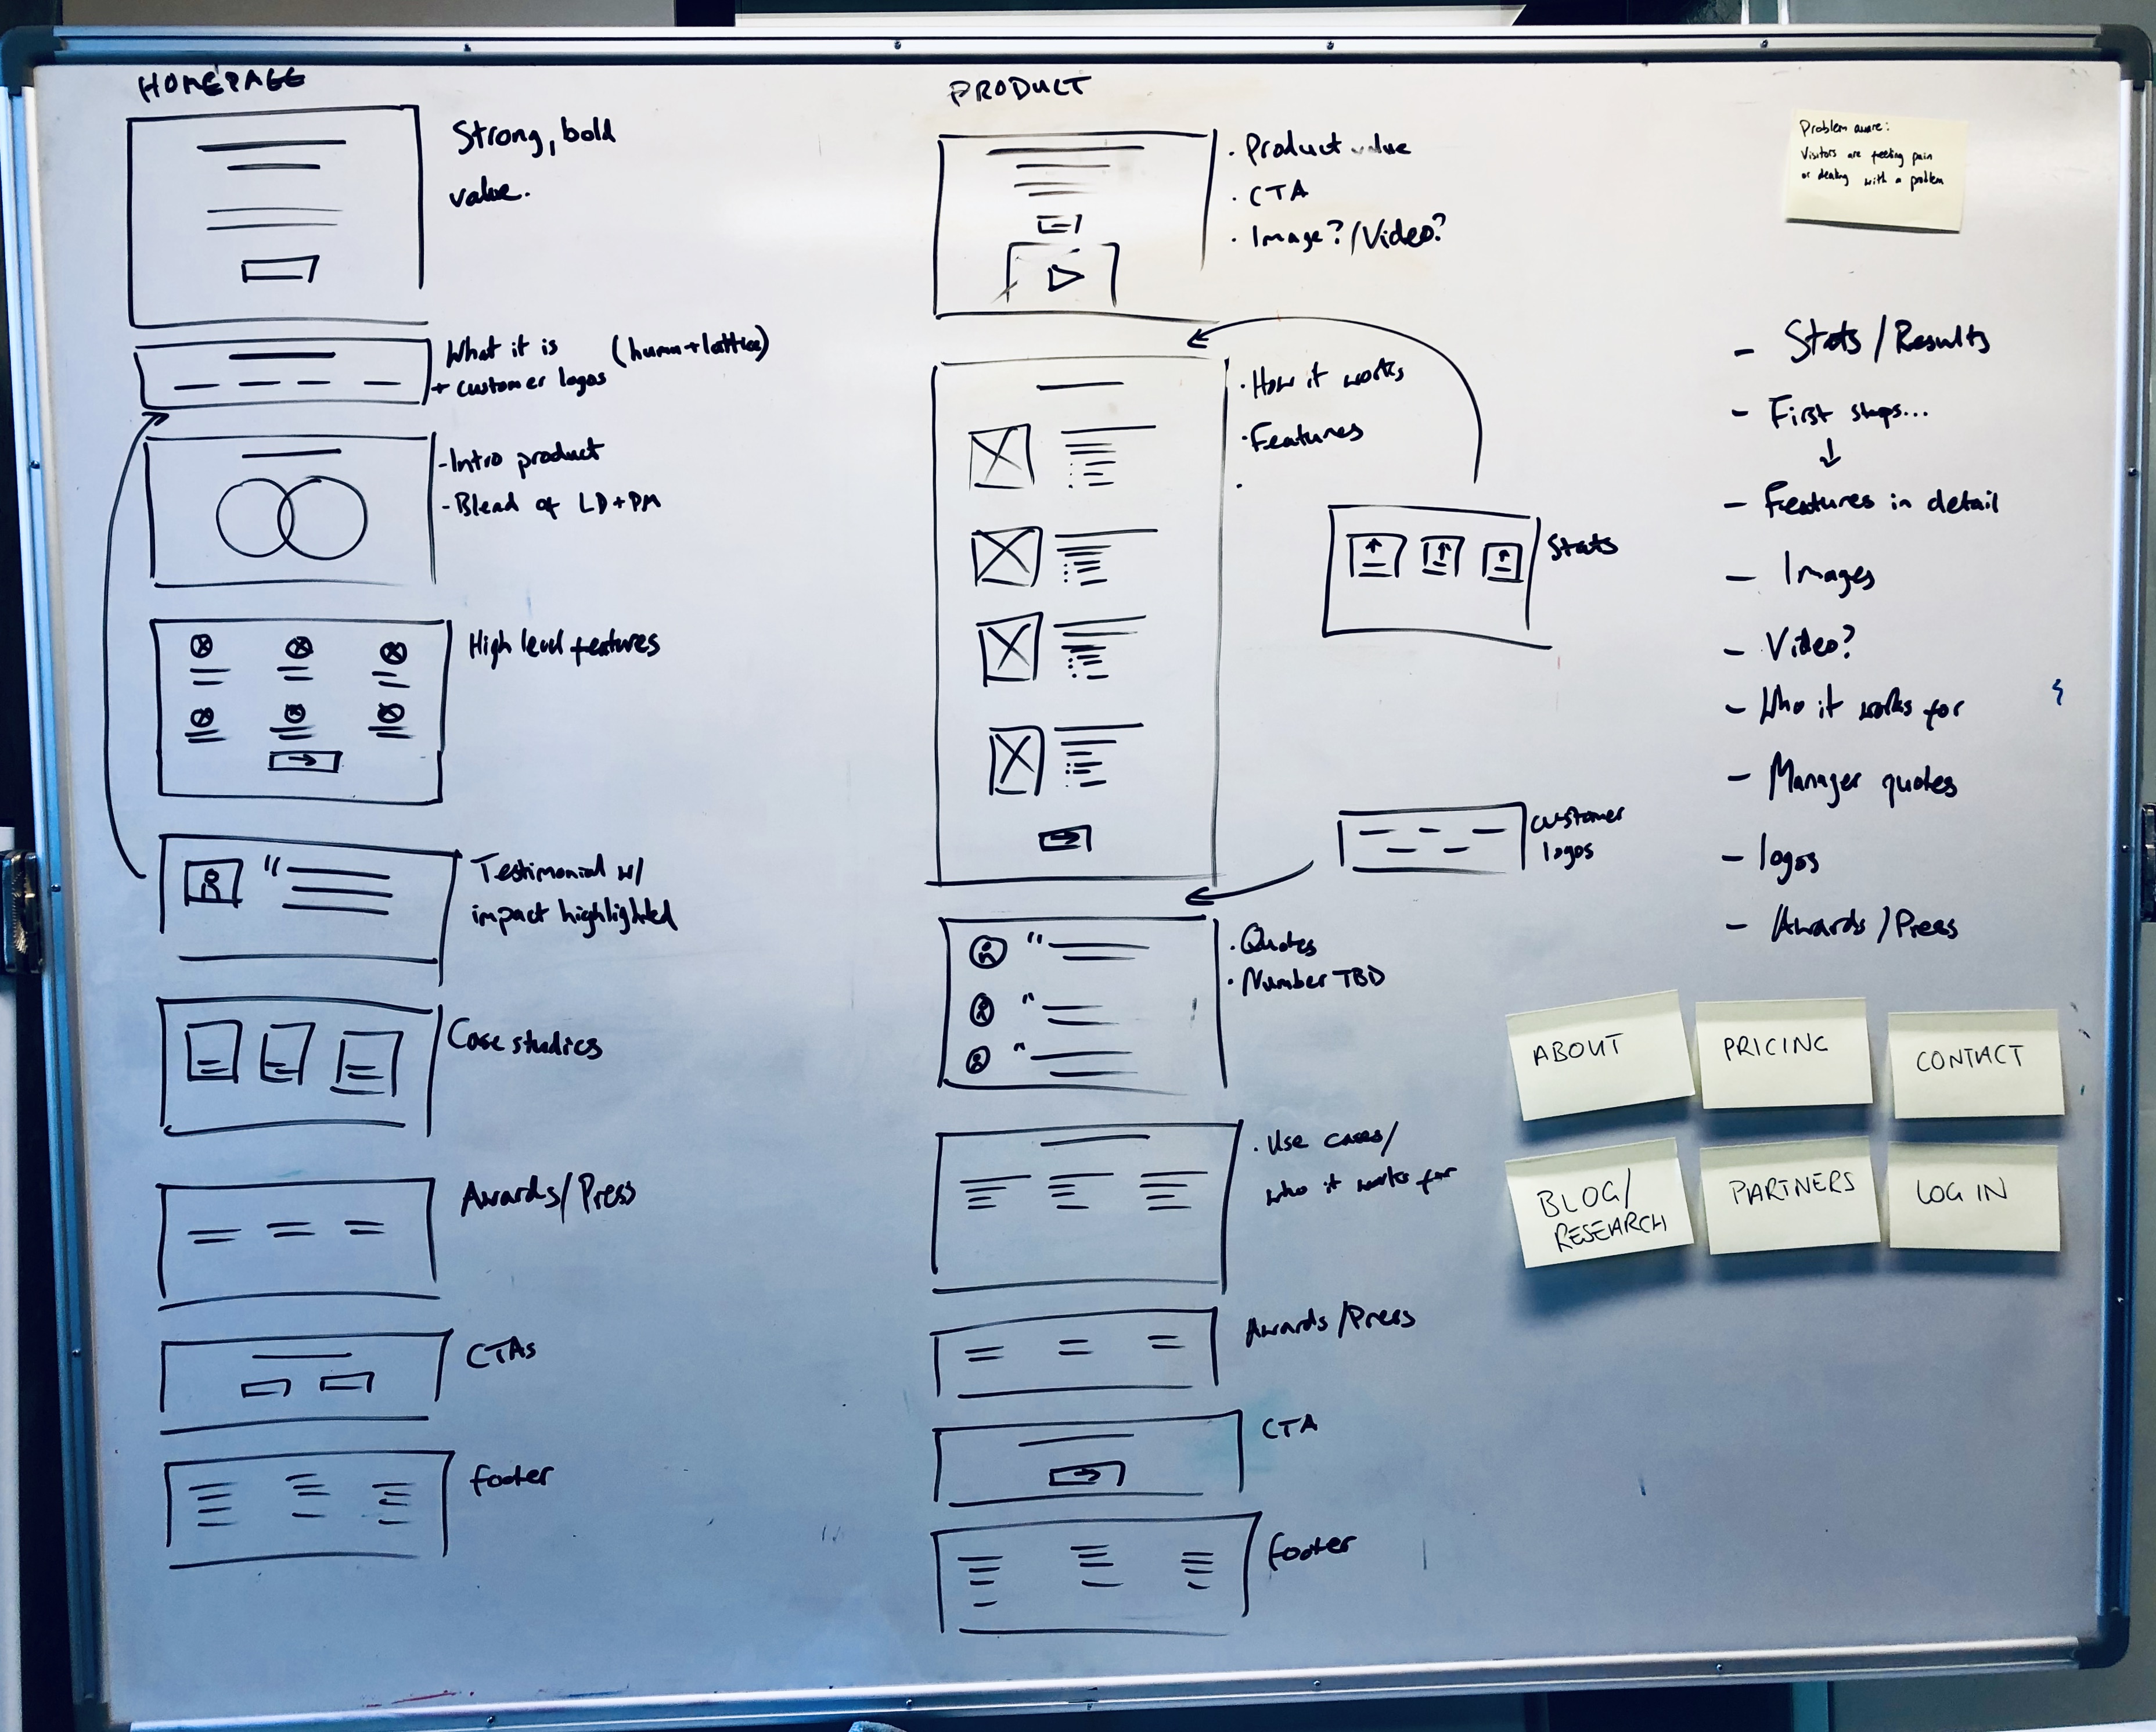 HOMEPAGE
Strong, bold
value.
What it is (humu+lattice)
+ customer logos
- Intro product
- Blend of LD+PM
High level features
Testimonial w/
impact highlighted
Case studies
Awards/Press
CTAs
footer
PRODUCT
· Product value
· CTA
· Image?/Video?
· How it works
· Features
·
Stats
customer
logos
· Quotes
· Number TBD
· Use cases/
who it works for
Awards/Press
CTA
footer
Problem aware:
Visitors are feeling pain
or dealing with a problem
- Stats/Results
- First steps...
- Features in detail
- Images
- Video?
- Who it works for
- Manager quotes
- logos
- Awards/Press
ABOUT
PRICING
CONTACT
BLOG/
RESEARCH
PARTNERS
LOG IN